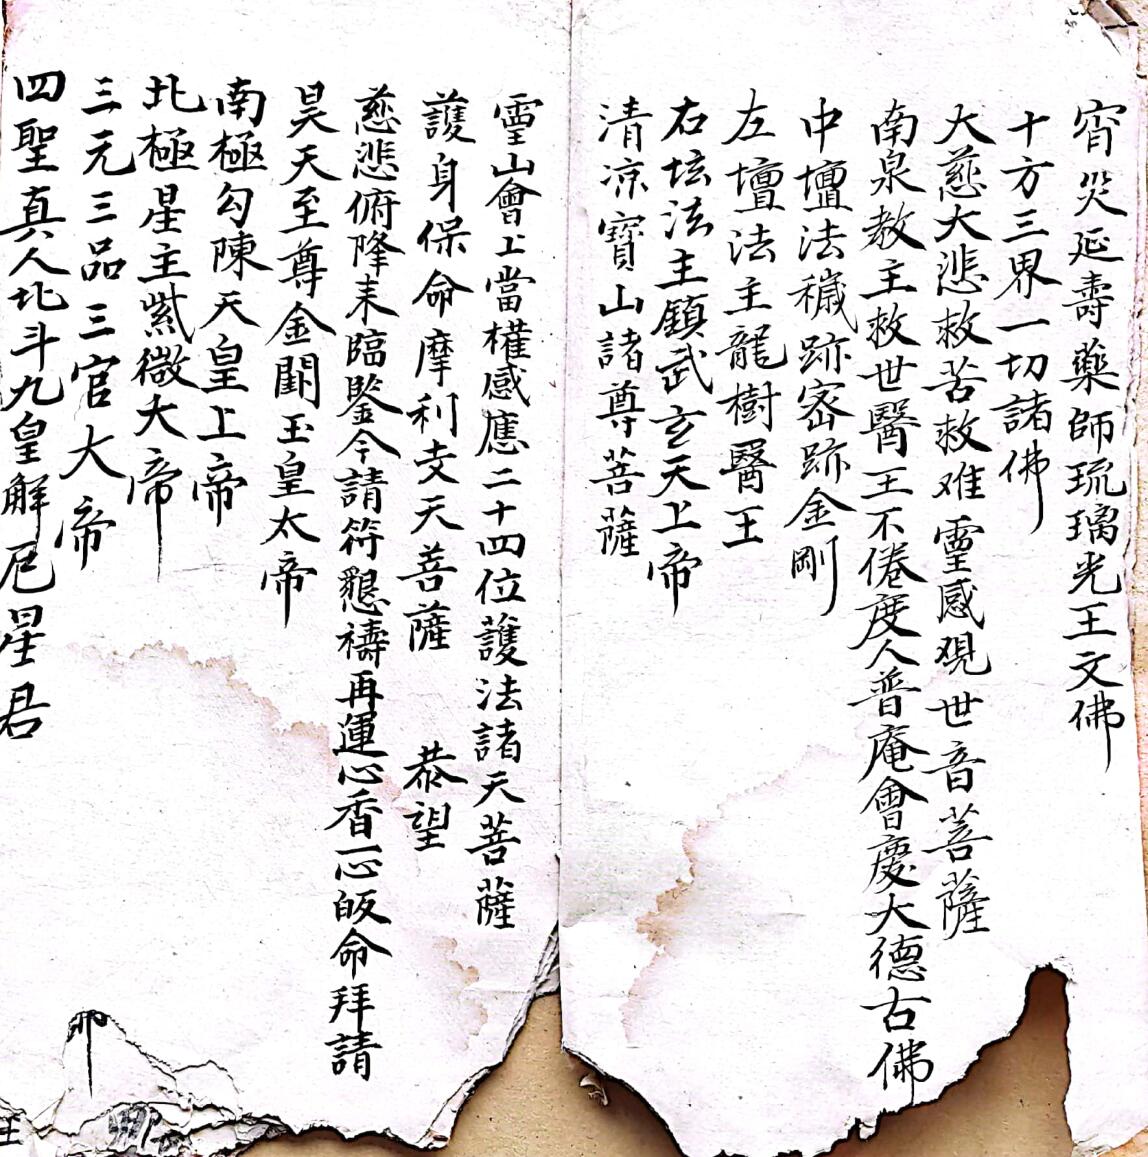 宵災延壽藥師琉璃光王文佛
十方三界一切諸佛
大慈大悲救苦救难靈感覌世音菩薩
南泉教主救世醫王不倦度人普庵會慶大德古佛
中壇法穢跡宻跡金剛
左壇法主龍樹醫王
右坛法主鎮武玄天上帝
清凉寳山諸尊菩薩
靈山會上當權感應二十四位護法諸天菩薩
護身保命摩利支天菩薩 恭望
慈悲俯降来臨鍳今請符懇禱再運心香一心皈命拜請
昊天至尊金闕玉皇太帝
南極勾陳天皇上帝
北極星主紫微大帝
三元三品三官大帝
四聖真人北斗九皇解厄星君